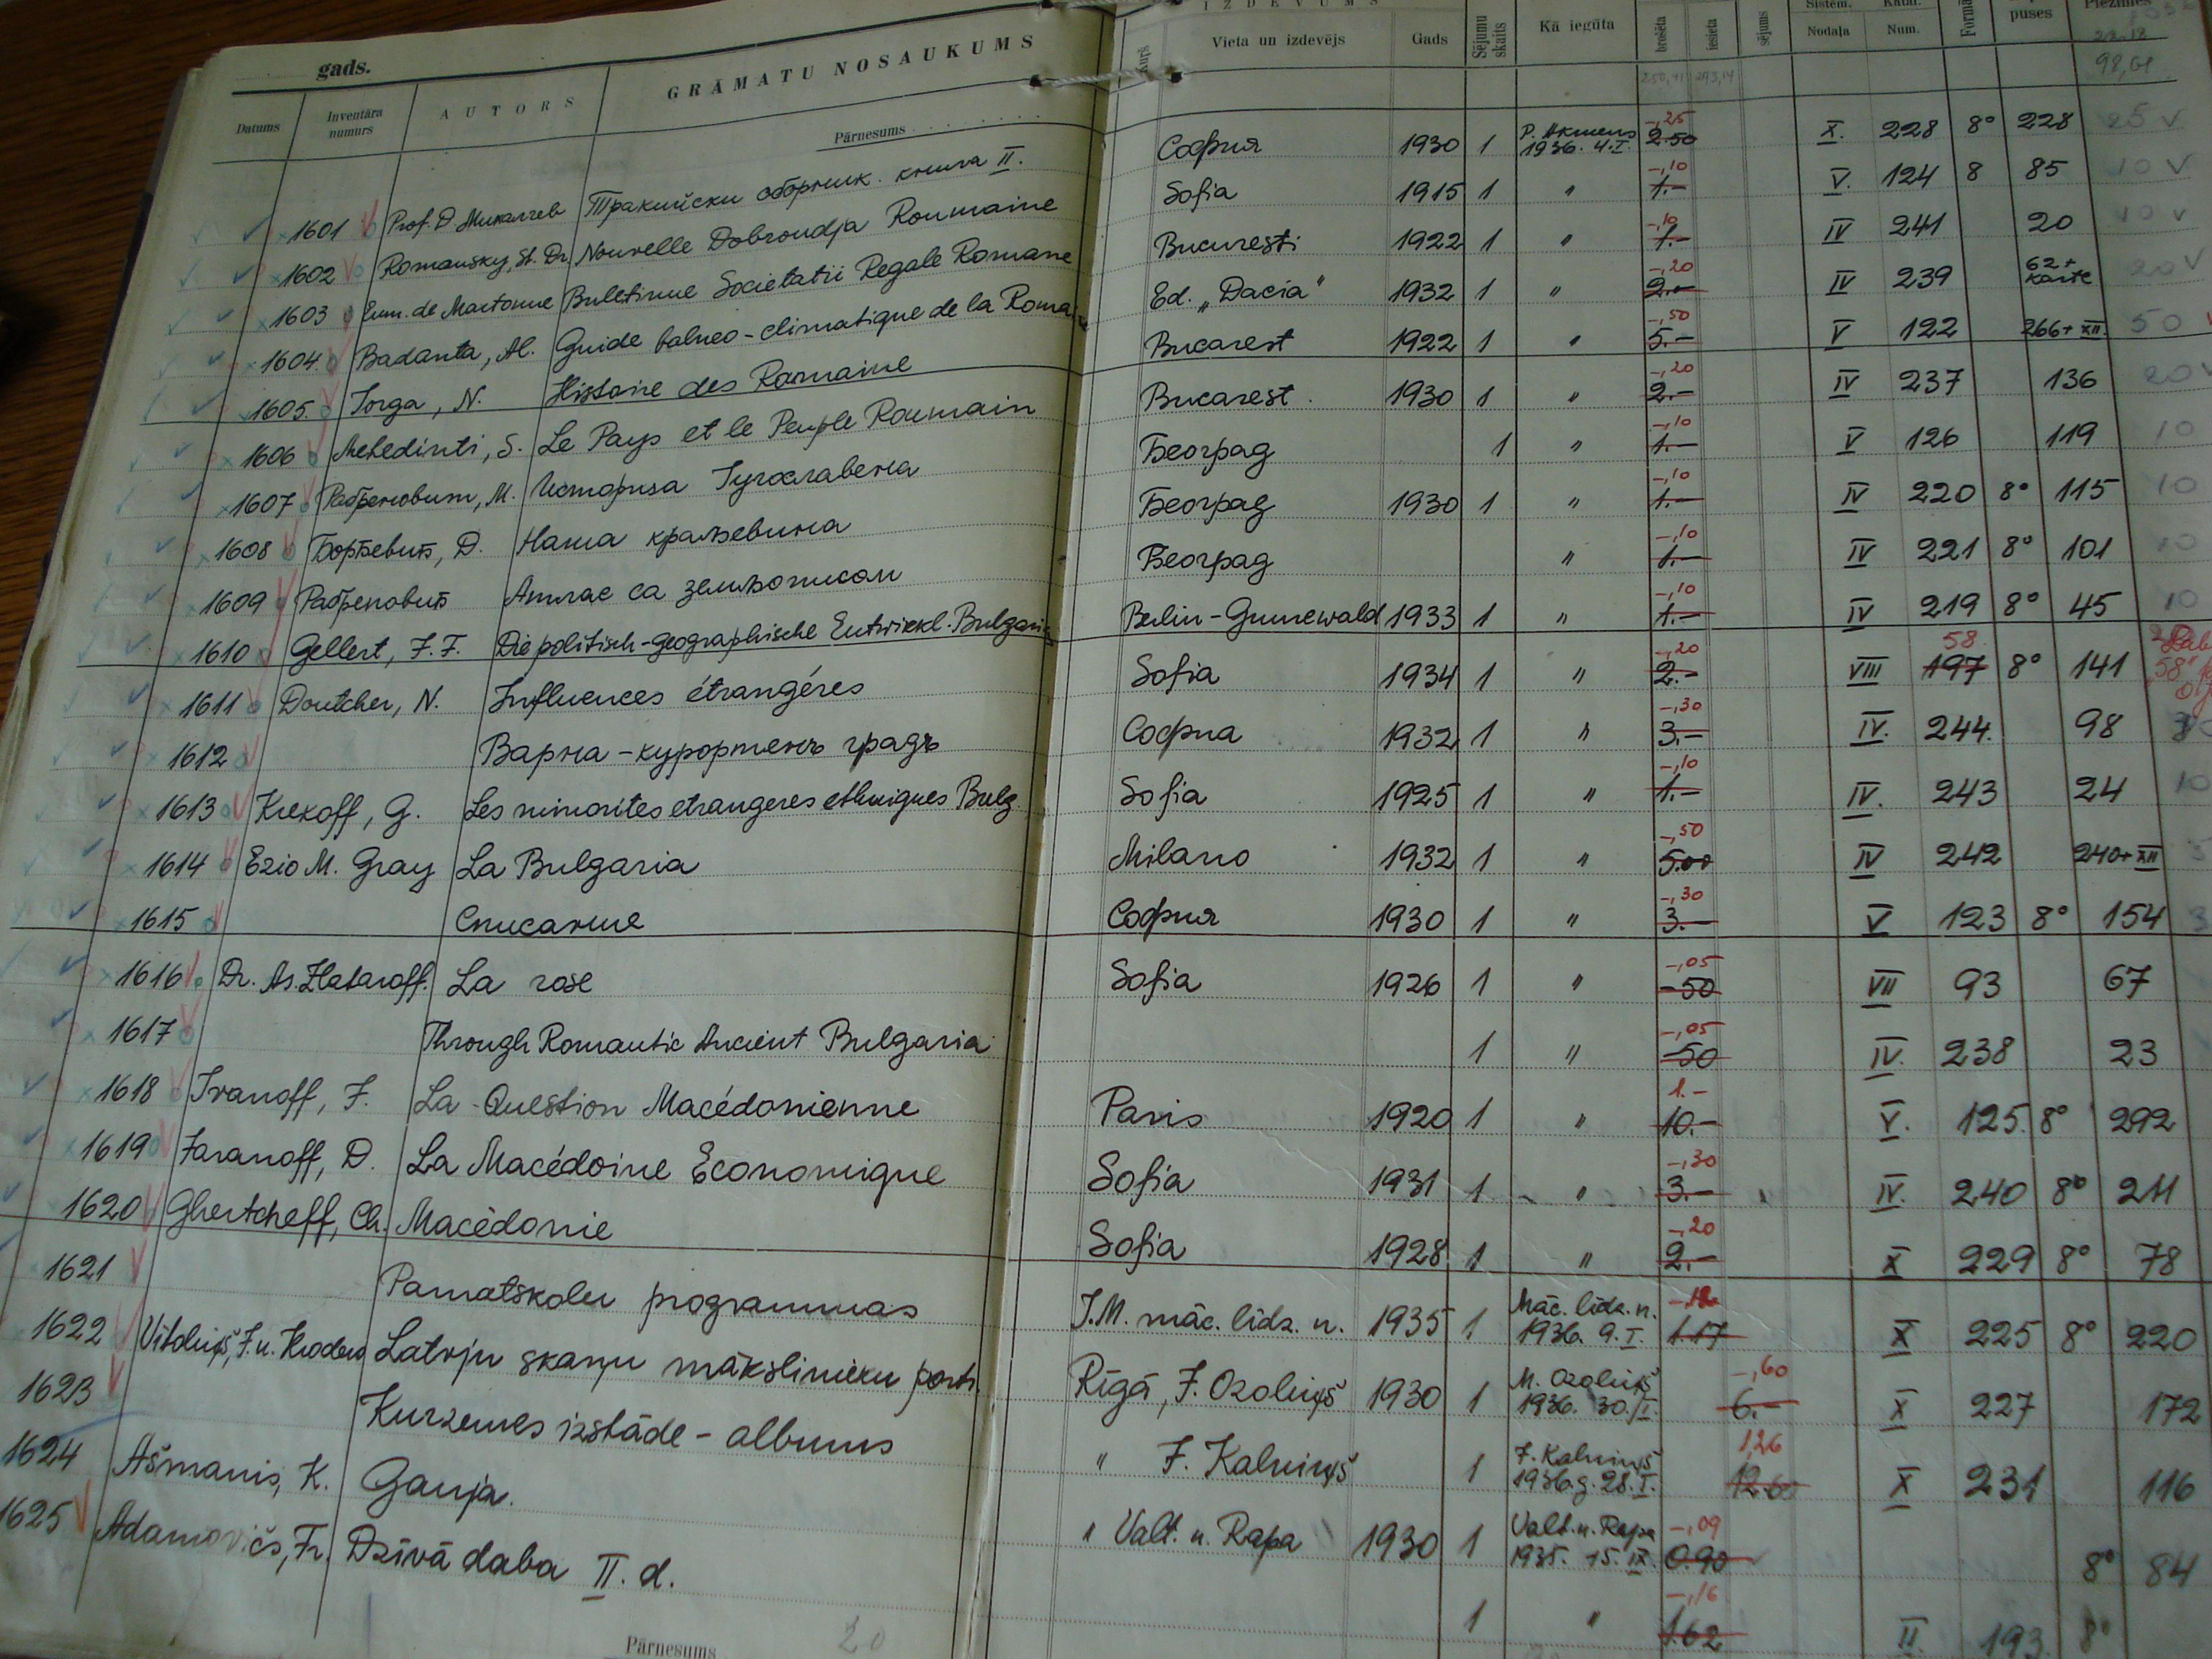 gads.
Datums Inventāra numurs AUTORS GRĀMATU NOSAUKUMS
IZDEVUMS
Vieta un izdevējs Gads Sējumu skaits Kā iegūta brošēta iesieta sējums Sistēm. Nodaļa Katal. Num. puses Piezīmes
Pārnesums
1601 Prof. D Михалчев Тракийски сборник. книга II. София 1930 1 P. Akmens 1936. 4.I. -,25 2.50 X. 228 8° 228 25 v
1602 Romansky, St. Dr. Nouvelle Dobroudja Roumaine Sofia 1915 1 " -,10 1.- V. 124 8 85 10 v
1603 Em. de Martonne Buletinue Societatii Regale Romane Bucuresti 1922 1 " -,10 1.- IV 241 20 10 v
1604 Badanta, Al. Guide balneo-climatique de la Ed. „Dacia" 1932 1 " -,20 2.- IV 239 62+ karte 20 v
1605. Jorga, N. Histoire des Romaine Bucarest 1922 1 " -,50 5.- V 122 266+XII. 50
1606 Mehedinti, S. Le Pays et le Peuple Roumain Bucarest. 1930 1 " -,20 2.- IV 237 136 20
1607 M. Југославена Београд 1 " -,10 1.- V 126 119 10
1608 Д. Наша краљевина Београд 1930 1 " -,10 1.- IV 220 8° 115 10
1609 Атлас са земљописом Београд " -,10 1.- IV 221 8° 101 10
1610 Gellert, F. F. Die politisch-geographische Entwickl. Berlin-Grunewald 1933 1 " -,10 1.- IV 219 8° 45 10
1611 Doutcher, N. Influences étrangéres Sofia 1934 1 " -,20 2.- VIII 58. 197 8° 141
1612 Варна-курортенъ градъ София 1932 1 " -,30 3.- IV. 244. 98
1613 Krekoff, G. Les minorites etrangeres ethniques Bulg Sofia 1925 1 " -,10 1.- IV. 243 24 10
1614 Ezio M. Gray La Bulgaria Milano 1932 1 " -,50 5.00 IV 242 240+XII
1615 Списание София 1930 1 " -,30 3.- V 123 8° 154
1616 Dr. As. Zlataroff. La rose Sofia 1926 1 " -,05 -50 VII 93 67
1617 Through Romantic Ancient Bulgaria 1 " -,05 -50 IV. 238 23
1618 Ivanoff, J. La Question Macédonienne Paris 1920 1 " 1.- 10.- V. 125. 8° 292
1619 Jaranoff, D. La Macédoine Economique Sofia 1931 1 " -,30 3.- IV. 240 8° 211
1620 Ghertcheff, Ch. Macédonie Sofia 1928 1 " -,20 2.- X 229 8° 78
1621 Pamatskolu programmas I.M. māc. līdz. n. 1935 1 Māc. līdz. n. 1936. 9.I. 1.17 X 225 8° 220
1622 Vitoliņš, J. u. Latvju skaņu mākslinieku portr. Rīgā, J. Ozoliņš 1930 1 M. Ozoliņš 1936. 30.I. -,60 6.- X 227 172
1623 Kurzemes izstāde - albums " J. Kalniņš 1 J. Kalniņš 1936.g. 28.I. 1,26 12.60 X 231 116
1624 Ašmanis, K. Gauja. " Valt. u. Rapa 1930 1 Valt. u. Rapa 1935. 15. IX. -,09 0.90 8° 84
1625 Adamovičs, Fr. Dzīvā daba II. d. 1 " -,16 1.62 II. 193. 8°
Pārnesums 20